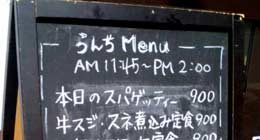 らんち Menu
AM 11:45~PM 2:00
本日のスパゲッティー 900
牛スジ、スネ煮込み定食 900
定食 900